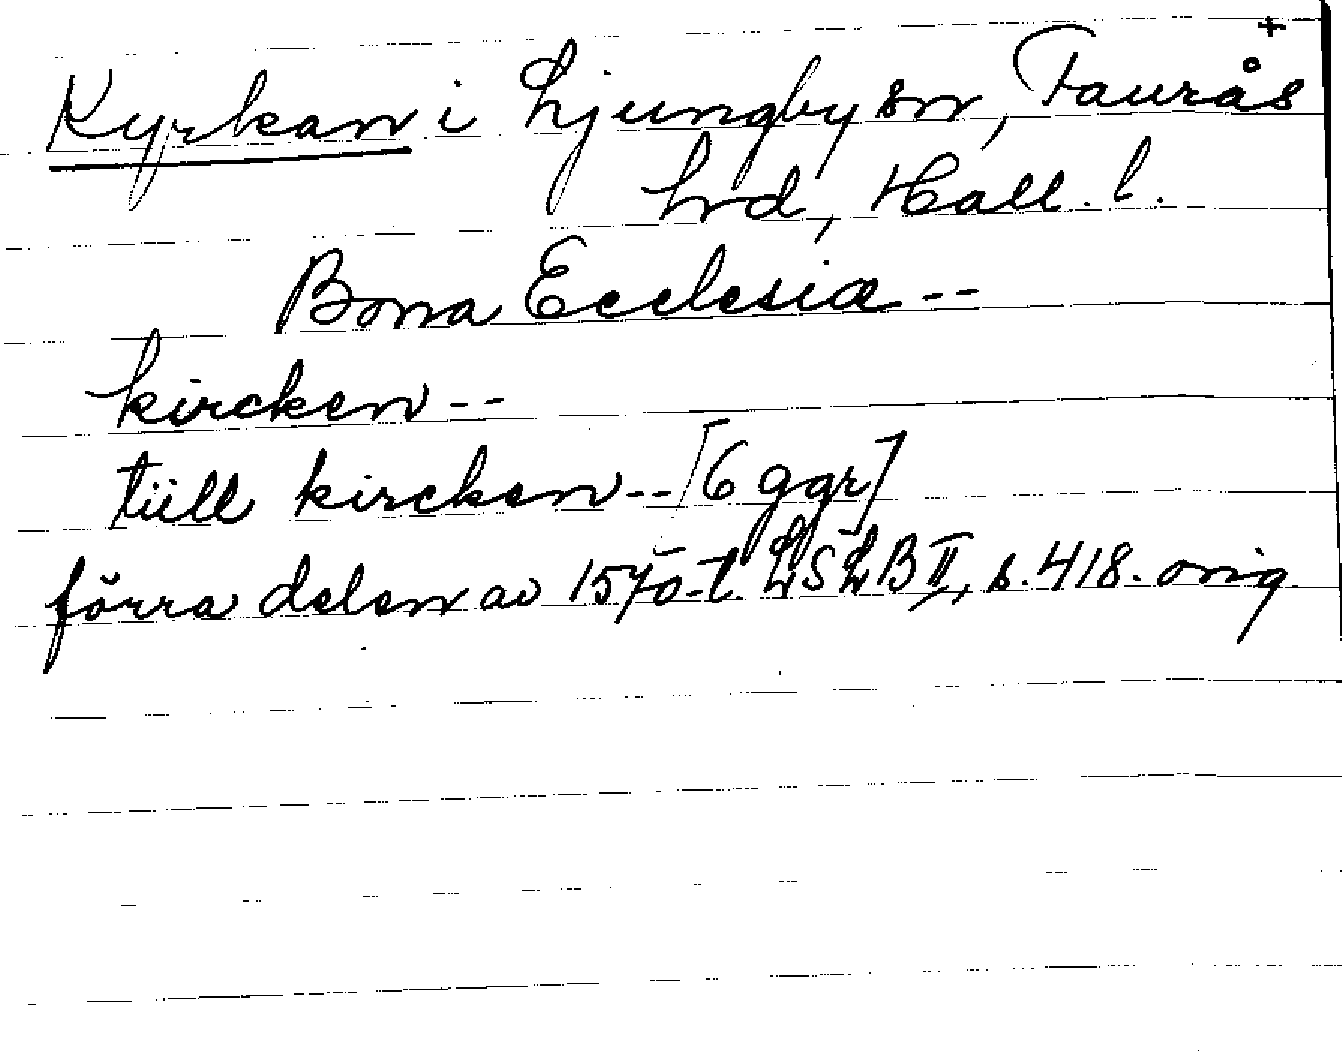 +
Kyrkan i Ljungby sn, Faurås
hrd, Hall. l.
Bona Ecclesiæ --
kircken --
tüll kircken -- [6 ggr]
förra delen av 1570-t. LSLB II, s. 418. orig